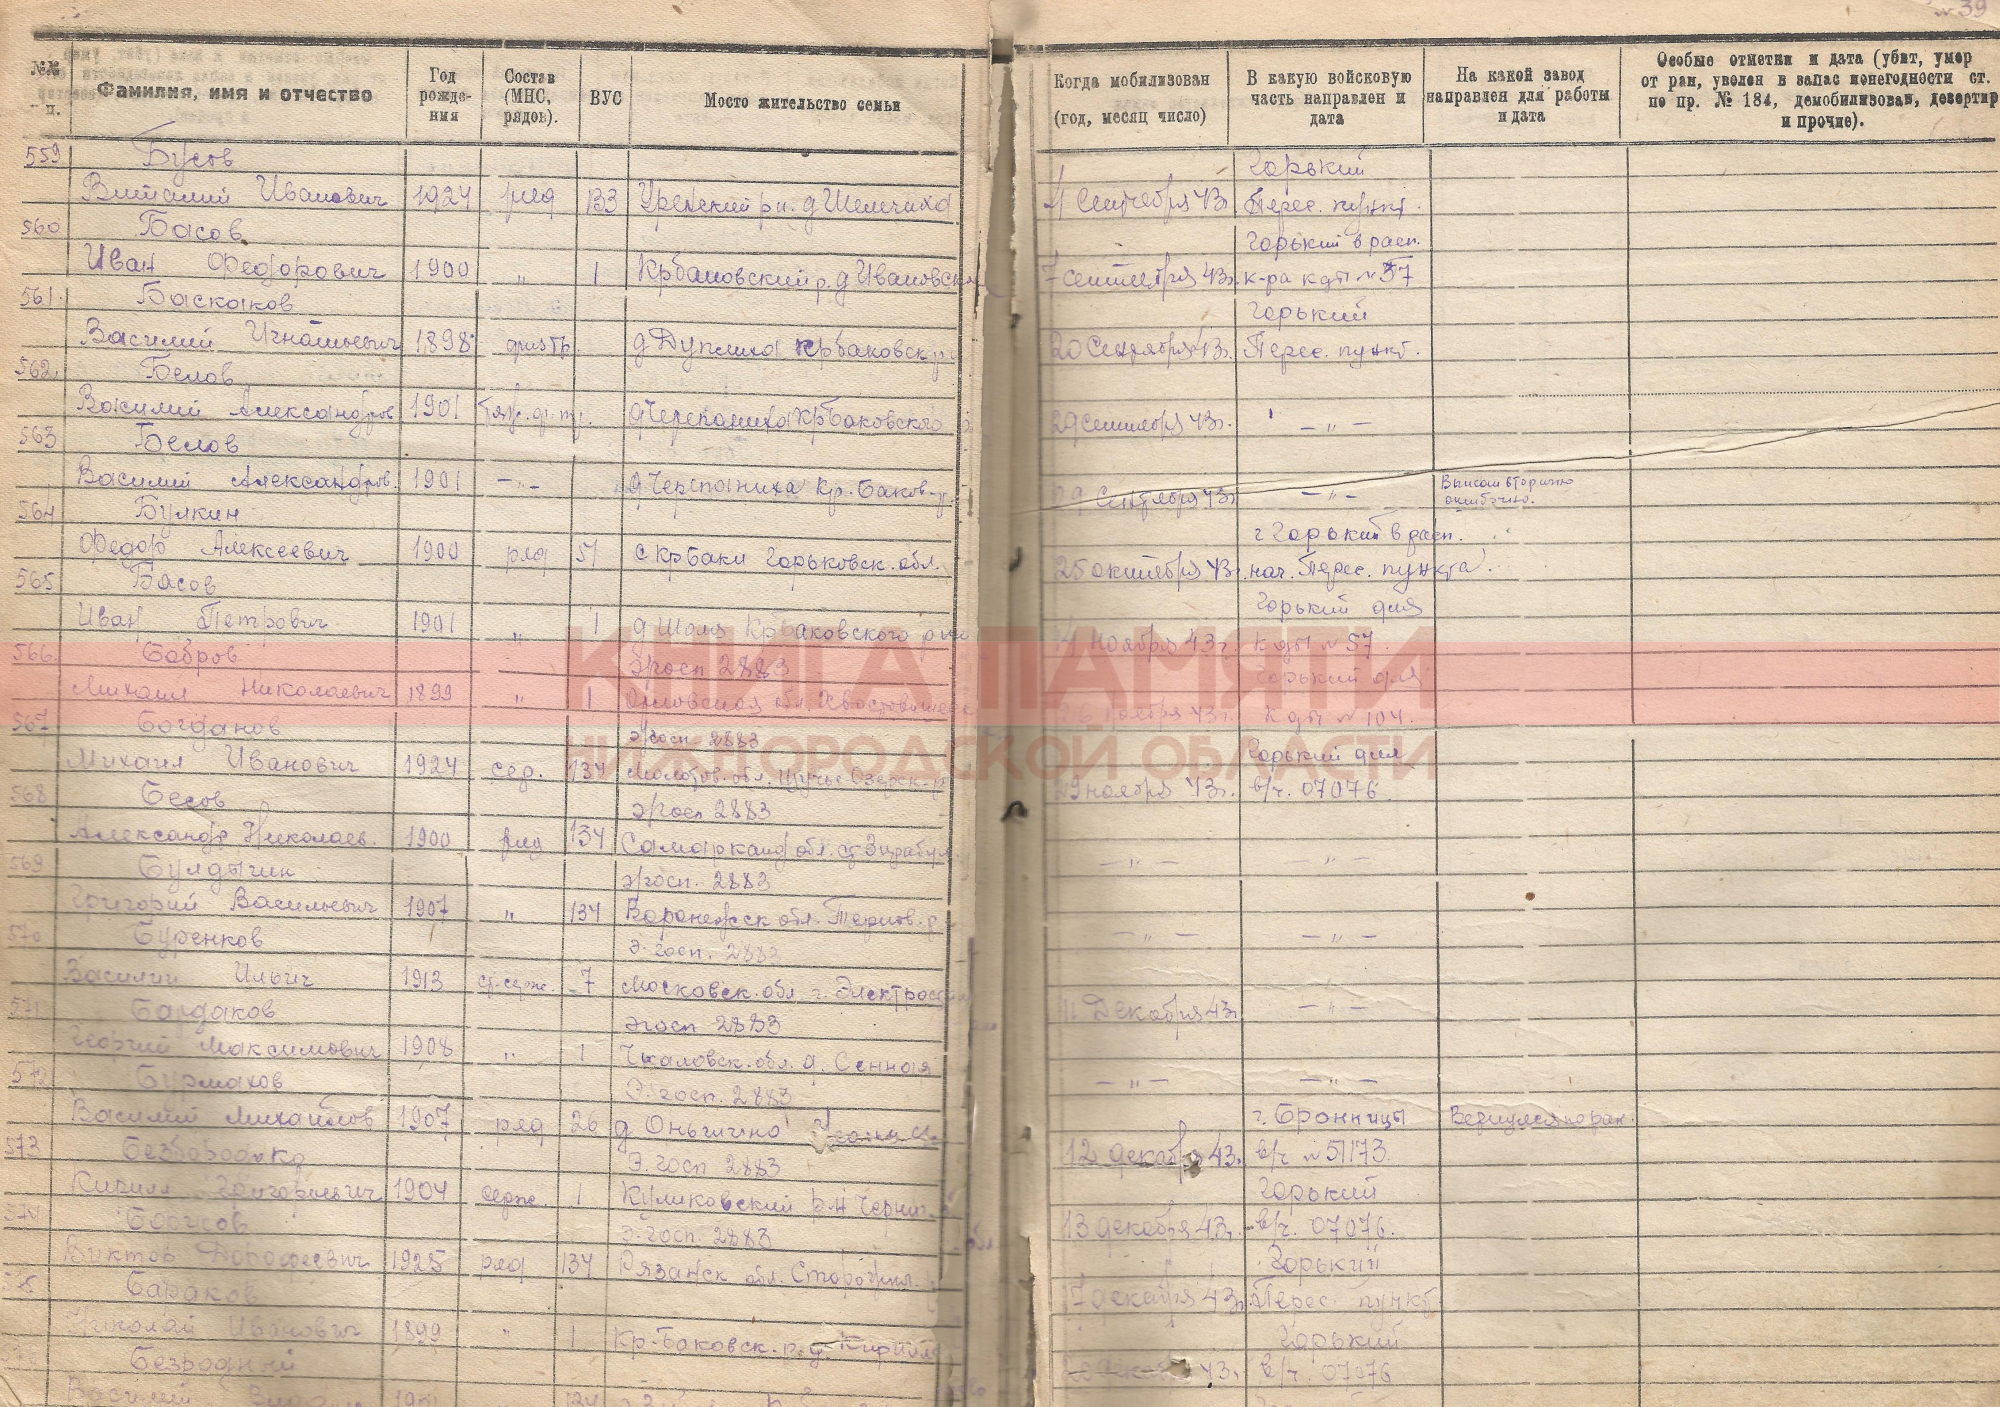 № 39
№№ п.
Фамилия, имя и отчество
Год рожде- ния
Состав (МНС, рядов).
ВУС
Мосто жительство семьи
Когда мобилизован (год, месяц число)
В какую войсковую часть направлен и дата
На какой завод направлен для работы и дата
Особые отметки и дата (убит, умер от ран, уволен в запас понегодности ст. по пр. № 184, демобилизован, дезертир и прочие).
559 Бусов Горький
Виталий Иванович 1924 ряд 133 Уренский рн. д 4 Сентября 43г. Перес. пункт.
560 Басов Горький в расп.
Иван Федорович 1900 „ 1 Крбаковский р. д Ивановск 7 сентября 43г. к-ра кдп № 57
561 Баскаков Горький
Василий Игнатьевич 1898 д Дуплиха Крбаковск р 20 Сентября 43г. Перес. пункт.
562 Белов
Василий Александров 1901 д Черепаниха Крбаковского 29 сентября 43г. — „ —
563 Белов
Василий Александров. 1901 — „ — д Черепаниха Кр. Баков-р 29 Сентября 43г. — „ — Вписан вторично ошибочно.
564 Булкин г Горький в расп.
Федор Алексеевич 1900 ряд 51 с Крбаки Горьковск. обл. 25 октября 43г. нач. Перес. пункта.
565 Басов Горький для
Иван Петрович 1901 „ 1 д Шоля Крбаковского р 4 Ноября 43г. Кдп № 57.
566 Бобров эгосп 2883 Горький для
Михаил Николаевич 1899 „ 1 Орловская обл. Хвастович ноября 43г. Кдп № 104.
567 Богданов эгосп 2883 Горький для
Михаил Иванович 1924 сер. 134 Молотов. обл. Щучье-Озерск-р 29 ноября 43г. в/ч. 07076.
568 Бесов эгосп 2883
Александр Николаев. 1900 ряд 134 Самарканд обл. — „ — — „ —
569 Булдыгин эгосп. 2883
Григорий Васильевич 1907 „ 134 Воронежск обл. — „ — — „ —
570 Буренков э. госп. 2883
Василий Ильич 1913 ст. серж. 7 Московск. обл. г. Электрост 11 Декабря 43г. — „ —
571 Бардаков эгосп 2883
Георгий Максимович 1908 „ 1 Чкаловск. обл. д. Сенная — „ — — „ —
572 Бурмахов Э. госп. 2883 г. Бронницы Вернулся по ран.
Василий Михайлов 1907 ряд 26 д 12 декабря 43г. в/ч № 51173.
573 Безбородко Э. госп 2883 Горький
Кирилл Григорьевич 1904 серж. 1 Куликовский р-н Черниг. 13 декабря 43г. в/ч. 07076.
574 э. госп. 2883 Горький
Виктор Дорофеевич 1925 ряд 134 Рязанск обл. 17 декабря 43г. Перес. пункт
575 Бараков Горький
Николай Иванович 1899 „ 1 Кр-Баковск. р. д. 43г. в/ч. 07076
Безродный
Василий
КНИГА ПАМЯТИ
НИЖГОРОДСКОЙ ОБЛАСТИ